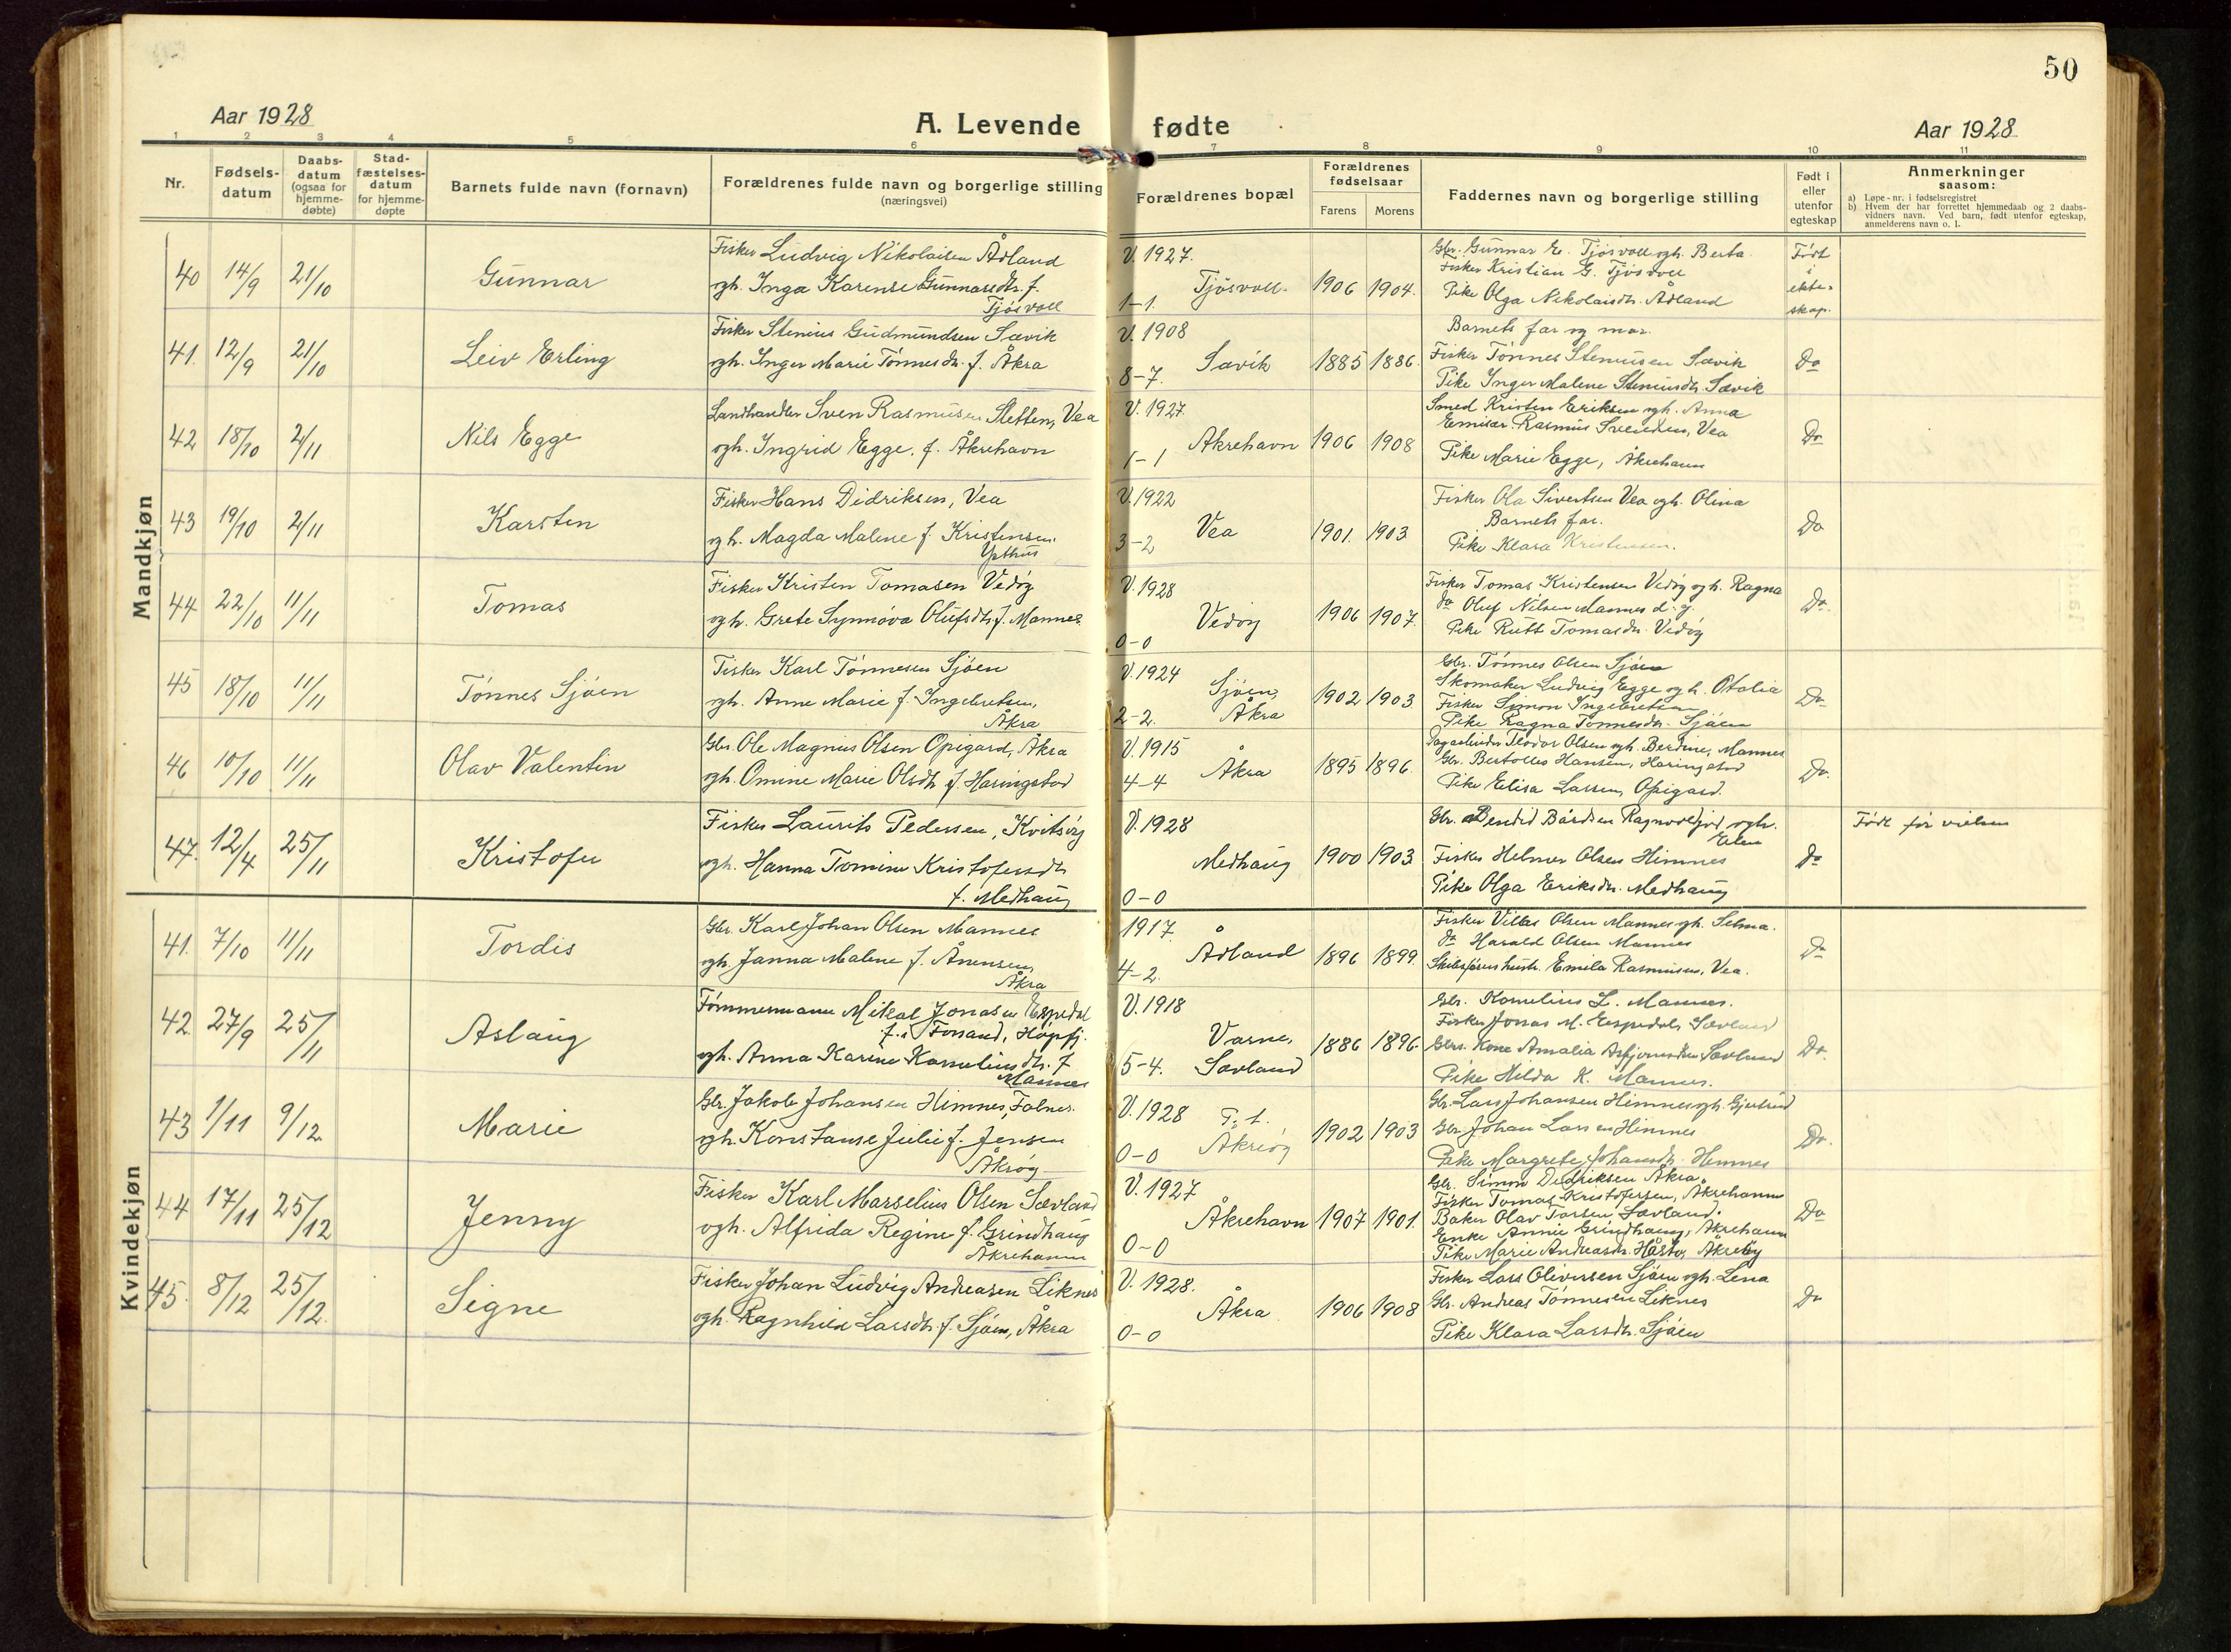 50
Aar 1928
A. Levende fødte
Aar 1928
1 2 3 4 5 6 7 8 9 10 11
Nr.
Fødsels-
datum
Daabs-
datum
(ogsaa for
hjemme-
døbte)
Stad-
fæstelses-
datum
for hjemme-
døpte
Barnets fulde navn (fornavn)
Forældrenes fulde navn og borgerlige stilling
(næringsvei)
Forældrenes bopæl
Forældrenes
fødselsaar
Farens Morens
Faddernes navn og borgerlige stilling
Født i
eller
utenfor
egteskap
Anmerkninger
saasom:
a) Løpe-nr. i fødselsregistret
b) Hvem der har forrettet hjemmedaab og 2 daabs-
vidners navn. Ved barn, født utenfor egteskap,
anmelderens navn o. l.
Mandkjøn
40 14/9 21/10 Gunnar
Fisker Ludvig Nikolaisen Ådland
ogh. Inga Karense Gunnarsdtr. f.
Tjøsvoll
V. 1927.
Tjøsvoll. 1906 1904.
1-1.
Gbr. Gunnar E. Tjøsvoll ogh. Berta
Fisker Kristian G. Tjøsvoll
Pike Olga Nikolaisdtr. Ådland
Født
i
ekte-
skap.
41. 12/9 21/10 Leiv Erling
Fisker Stenius Gudmundsen Sævik
ogh. Inger Marie Tønnesdtr. f. Åkra
V. 1908
Sævik 1885 1886.
8-7.
Barnets far og mor.
Fisker Tønnes Steniusen Sævik
Pike Inger Malene Steniusdtr. Sævik
Do
42 18/10 2/11 Nils Egge
Landhandler Sven Rasmusen Sletten, Vea
ogh. Ingrid Egge. f. Åkrehavn
V. 1927.
Åkrehavn 1906 1908
1-1
Smed Kristen Eriksen ogh. Anna
Emisær Rasmus Svendsen, Vea
Pike Marie Egge, Åkrehavn
Do
43 19/10 2/11 Karsten
Fisker Hans Didriksen, Vea
ogh. Magda Malene f. Kristensen.
V. 1922
Vea 1901. 1903
3-2
Fisker Ola Sivertsen Vea ogh. Olina
Barnets far.
Pike Klara Kristensen.
Do
44 22/10 11/11 Tomas
Fisker Kristen Tomasen Vedøy
ogh. Grete Synnøva Olufsdtr. f. Mannes
V. 1928
Vedøy 1906 1907.
0-0
Fisker Tomas Kristensen Vedøy ogh. Ragna
do Oluf Nilsen Mannes d. y.
Pike Rutt Tomasdtr. Vedøy
Do.
45 18/10 11/11 Tønnes Sjøen
Fisker Karl Tønnesen Sjøen
ogh. Anne Marie f. Ingebretsen,
Åkra
V. 1924
Sjøen, 1902 1903
2-2. Åkra
Gbr. Tønnes Olsen Sjøen
Skomaker Ludvig Egge ogh. Otalia
Fisker Simon Ingebretsen
Pike Ragna Tønnesdtr. Sjøen
Do
46 10/10 11/11 Olav Valentin
Gbr Ole Magnus Olsen Opigard, Åkra
ogh. Omine Marie Olsdtr f. Haringstad
V. 1915
Åkra 1895 1896.
4-4
Dagarbeider Teodor Olsen ogh. Berdine, Mannes
Gbr. Bertolles Hansen, Haringstad
Pike Elisa Larsen, Opigard.
Do.
47. 12/4 25/11 Kristofer
Fisker Laurits Pedersen, Kvitsøy
ogh. Hanna Tomine Kristofersdtr
f. Medhaug
V. 1928
Medhaug 1900 1903
0-0
Gbr. Bendid Bårdsen ogh.
Elen
Fisker Helmer Olsen Himnes
Pike Olga Eriksdtr. Medhaug
Do
Født før vielsen
Kvindekjøn
41. 7/10 11/11 Tordis
Gbr. Karl Johan Olsen Mannes
ogh. Janna Malene f. Ånensen,
Åkra
1917.
Ådland 1896 1899.
4-2.
Fisker Villas Olsen Mannes ogh. Selma.
do Harald Olsen Mannes
Skibsførerhustr. Emila Rasmusen, Vea.
Do
42. 27/9 25/11 Aslaug
Tømmermann Mikal Jonasen Espedal
f. i Forsand, Høgsfj.
ogh. Anna Karine Korneliusdtr. f
Mannes
V. 1918
Varne, 1886 1896.
5-4. Sævland
Gbr. Kornelius L. Mannes.
Fisker Jonas M. Espedal, Sævland
Gbrs. Kone Amalia Asbjørnsdtr Sævland
Pike Hilda K. Mannes.
Do.
43 1/11 9/12 Marie
Gbr. Jakob Johansen Himnes, Falnes.
ogh. Konstanse Julie f. Jensen
Åkrøy
V. 1928 F. t.
Åkrøy 1902 1903
0-0
Gbr. Lars Johansen Himnes ogh. Gjertrud
Gbr. Johan Larsen Himnes
Pike Margrete Johansdtr. Himnes
Do.
44 17/11 25/12 Jenny
Fisker Karl Marselius Olsen Sævland
ogh. Alfrida Regine f. Grindhaug
Åkrehavn
V. 1927
Åkrehavn 1907 1901.
0-0
Gbr. Simon Didriksen Åkra.
Fisker Tomas Kristofersen, Åkrehavn
Baker Olav Torsen Sævland.
Enke Annie Grindhaug, Åkrehavn
Pike Marie Andreasdtr. Håstø, Åkrøy
Do
45. 8/12 25/12. Signe
Fisker Johan Ludvig Andreasen Liknes
ogh. Ragnhild Larsdtr. f. Sjøen, Åkra
V. 1928.
Åkra 1906 1908
0-0
Fisker Lars Oliversen Sjøen ogh. Lena
Gbr. Andreas Tønnesen Liknes
Pike Klara Larsdtr. Sjøen
Do